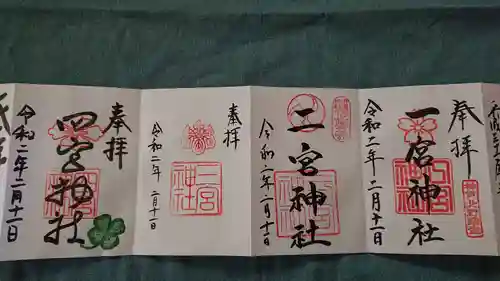 奉拝
一宮神社
令和二年二月十一日
奉拝
二宮神社
令和二年二月十一日
奉拝
三宮神社
令和二年
二月十一日
奉拝
四宮神社
令和二年二月十一日